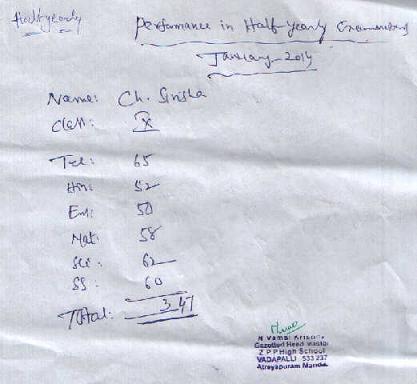 Half yearly
Performance in Half-yearly Examinations
January-2014
Name: Ch. Sirisha
Class: X
Tel: 65
Hin: 52
Em: 50
Mat: 58
Sci: 62
SS: 60
Total: 347
N Vamsi Krishna
Gazetted Head Master
Z P P High School
VADAPALLI 533 237
Atreyapuram Mandal